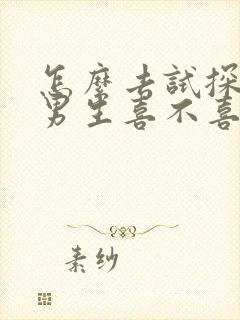 怎麽去試探
男生喜不喜
素纱